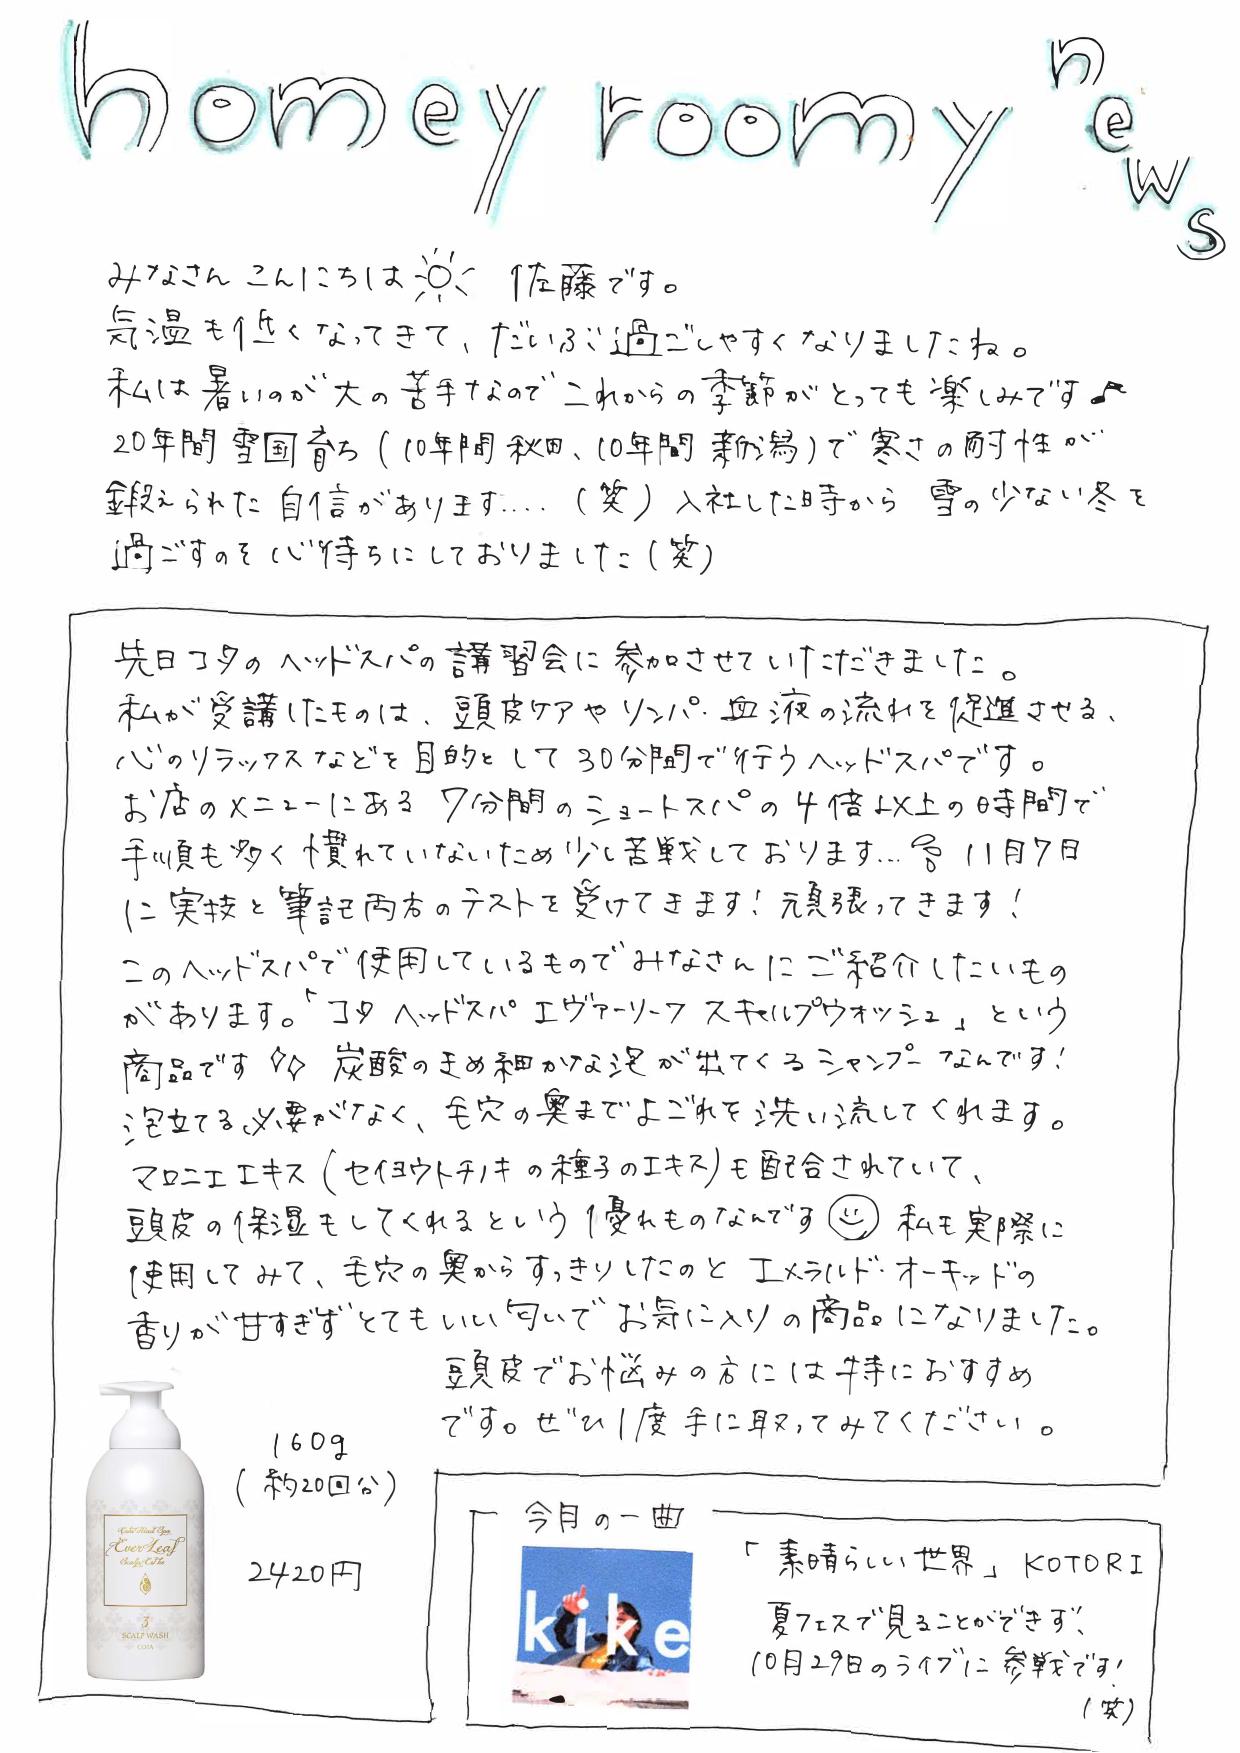 homey roomy news
みなさん こんにちは 佐藤です。
気温も低くなってきて、だいぶ過ごしやすくなりましたね。
私は暑いのが大の苦手なのでこれからの季節がとっても楽しみです♪
20年間雪国育ち(10年間秋田、10年間新潟)で寒さの耐性が
鍛えられた自信があります....(笑)入社した時から 雪の少ない冬を
過ごすのを心待ちにしておりました(笑)
先日コタのヘッドスパの講習会に参加させていただきました。
私が受講したものは、頭皮ケアやリンパ・血液の流れを促進させる、
心のリラックスなどを目的として30分間で行うヘッドスパです。
お店のメニューにある7分間のショートスパの4倍以上の時間で
手順も多く慣れていないため少し苦戦しております... 11月7日
に実技と筆記両方のテストを受けてきます!頑張ってきます!
このヘッドスパで使用しているものでみなさんにご紹介したいもの
があります。「コタ ヘッドスパ エヴァーリーフ スキャルプウォッシュ」という
商品です 炭酸のきめ細かな泡が出てくるシャンプーなんです!
泡立てる必要がなく、毛穴の奥までよごれを洗い流してくれます。
マロニエエキス(セイヨウトチノキの種子のエキス)も配合されていて、
頭皮の保湿もしてくれるという優れものなんです 私も実際に
使用してみて、毛穴の奥からすっきりしたのとエメラルド・オーキッドの
香りが甘すぎずとてもいい匂いでお気に入りの商品になりました。
頭皮でお悩みの方には特におすすめ
です。ぜひ1度手に取ってみてください。
160g
(約20回分)
2420円
Ever Leaf
3
SCALP WASH
COTA
今月の一曲
kike
「素晴らしい世界」KOTORI
夏フェスで見ることができず、
10月29日のライブに参戦です!
(笑)